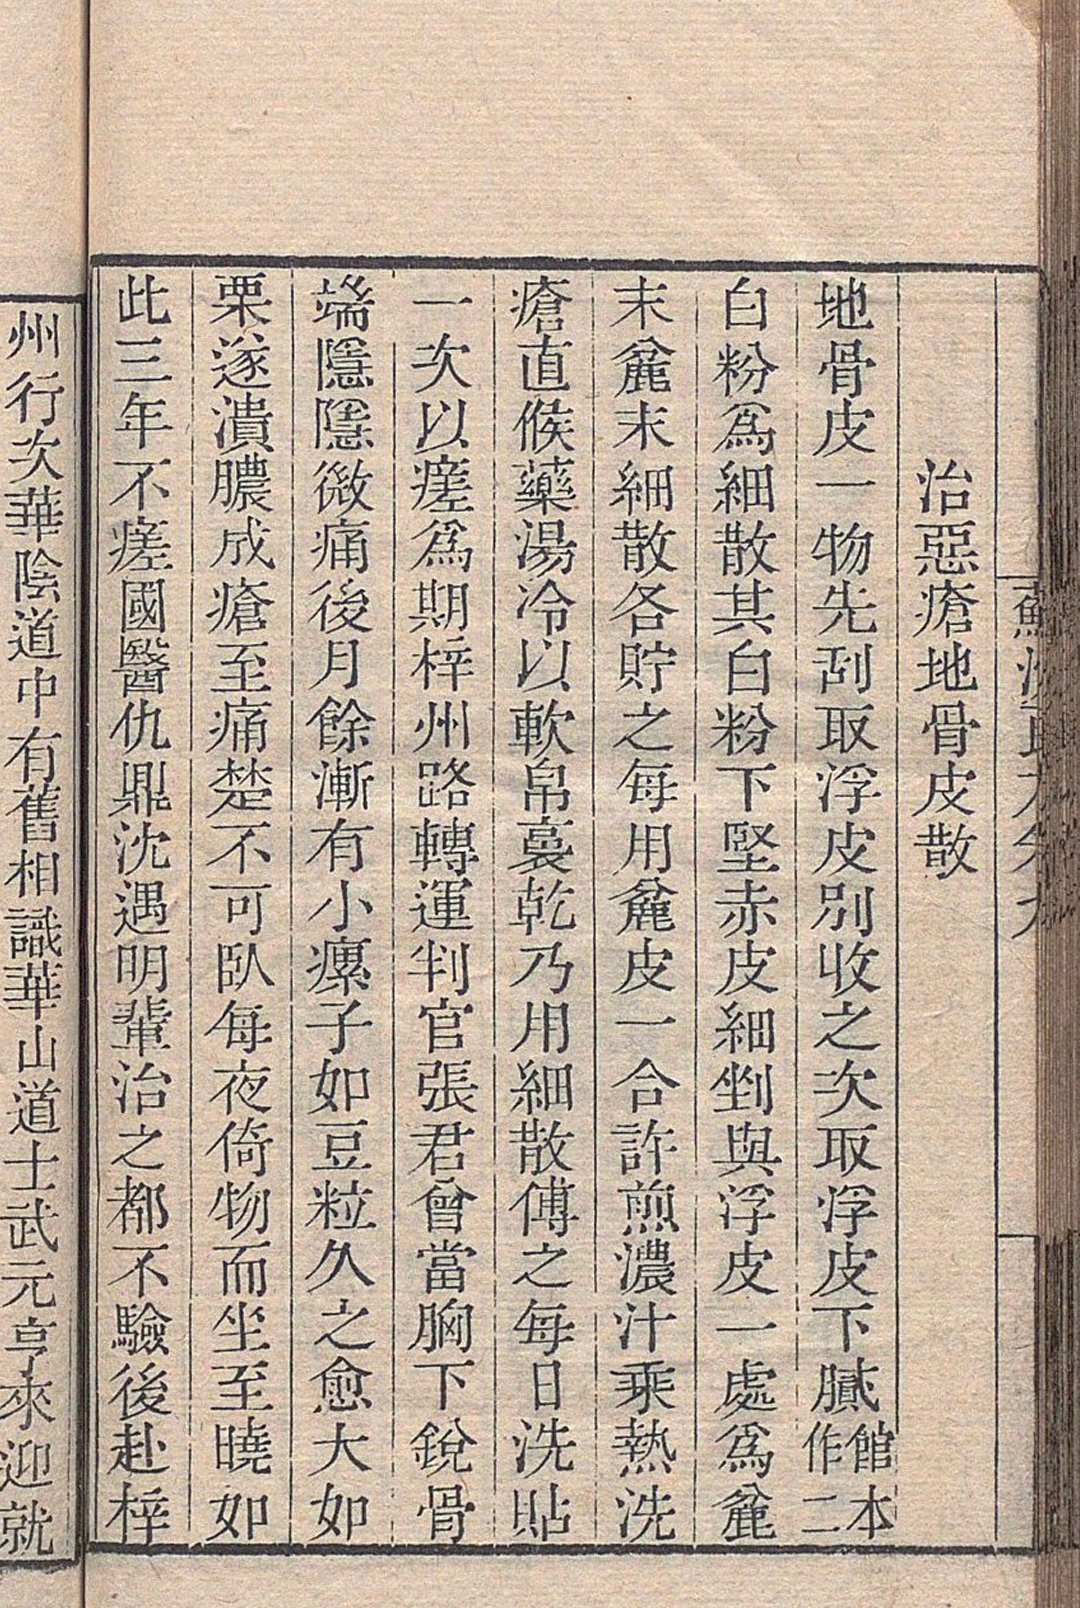 治惡瘡地骨皮散
地骨皮一物先刮取浮皮別收之次取浮皮下膩館本作二
白粉爲細散其白粉下堅赤皮細剉與浮皮一處爲麄
末麄末細散各貯之每用麄皮一合許煎濃汁乘熱洗
瘡直候藥湯冷以軟帛裛乾乃用細散傅之每日洗貼
一次以瘥爲期梓州路轉運判官張君曾當胸下銳骨
端隱隱微痛後月餘漸有小瘰子如豆粒久之愈大如
栗遂潰膿成瘡至痛楚不可臥每夜倚物而坐至曉如
此三年不瘥國醫仇鼎沈遇明輩治之都不驗後赴梓
州行次華陰道中有舊相識華山道士武元亨來迎就